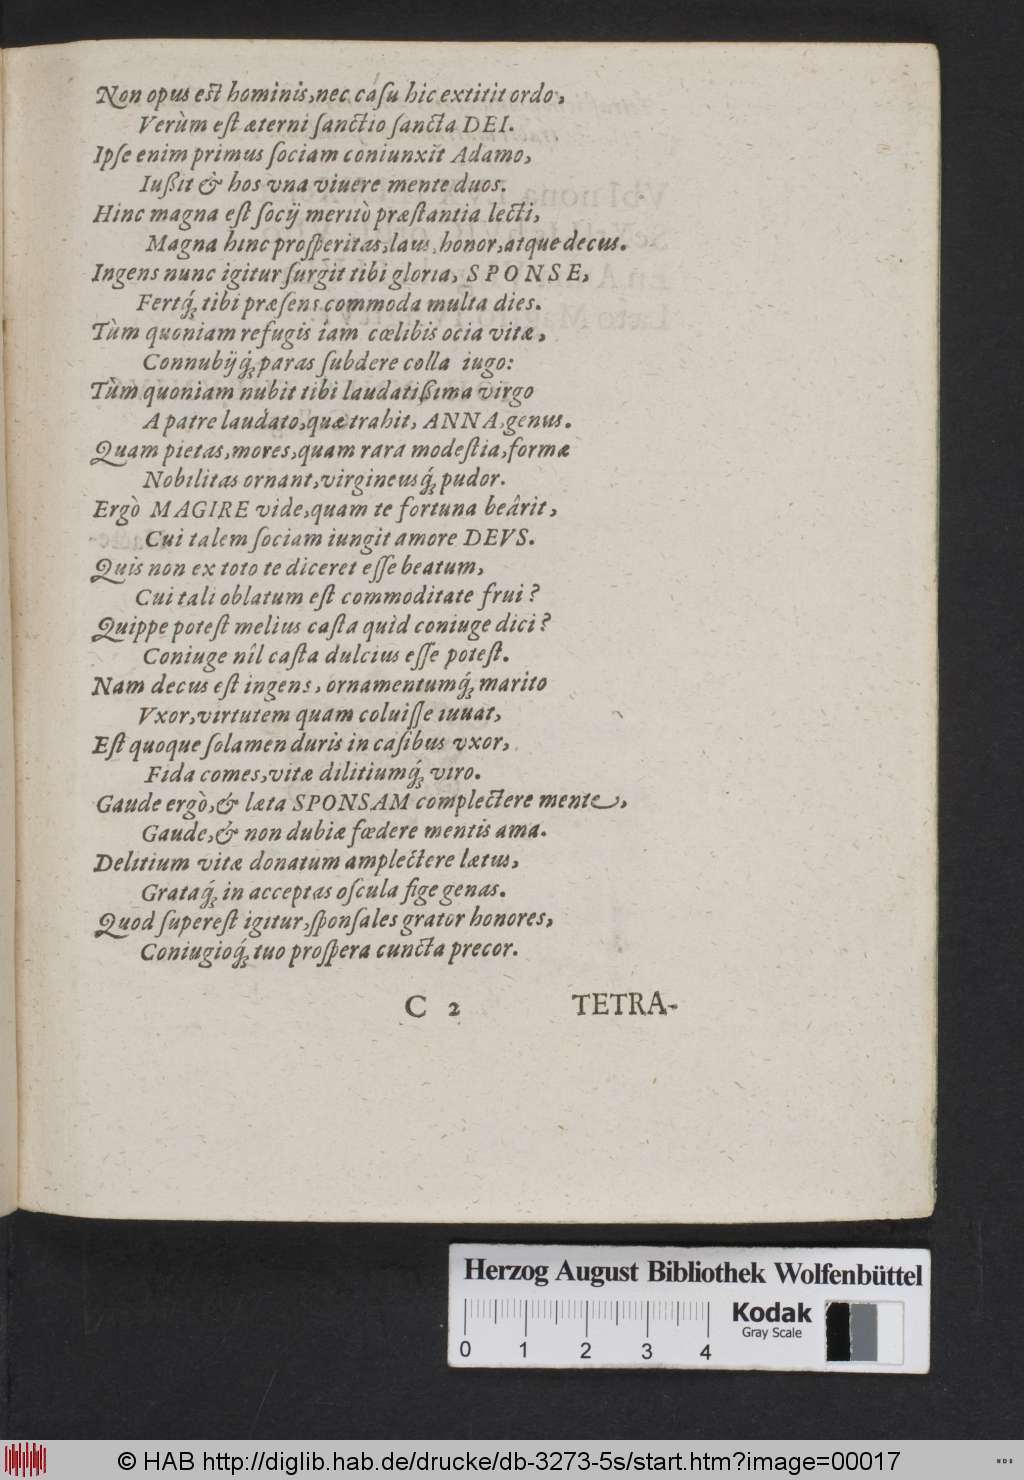 Non opus est hominis, nec casu hic extitit ordo,
Verùm eſt æterni ſanctio ſancta DEI.
Ipſe enim primus ſociam coniunxit Adamo,
Iußit & hos vna viuere mente duos.
Hinc magna eſt ſocij meritò præſtantia lecti,
Magna hinc proſperitas, laus, honor, atque decus.
Ingens nunc igitur ſurgit tibi gloria, SPONSE,
Fertq́; tibi præſens commoda multa dies.
Tùm quoniam refugis iam cœlibis ocia vitæ,
Connubijq́; paras ſubdere colla iugo:
Tùm quoniam nubit tibi laudatißima virgo
A patre laudato, quæ trahit, ANNA, genus.
Quam pietas, mores, quam rara modeſtia, formæ
Nobilitas ornant, virgineusq́; pudor.
Ergò MAGIRE vide, quam te fortuna beârit,
Cui talem ſociam iungit amore DEVS.
Quis non ex toto te diceret eſſe beatum,
Cui tali oblatum eſt commoditate frui?
Quippe poteſt melius caſta quid coniuge dici?
Coniuge nîl caſta dulcius eſſe poteſt.
Nam decus eſt ingens, ornamentumq́; marito
Vxor, virtutem quam coluiſſe iuuat,
Eſt quoque ſolamen duris in caſibus vxor,
Fida comes, vitæ dilitiumq́; viro.
Gaude ergò, & læta SPONSAM complectere mente,
Gaude, & non dubiæ fœdere mentis ama.
Delitium vitæ donatum amplectere lætus,
Grataq́; in acceptas oſcula fige genas.
Quod ſupereſt igitur, ſponſales grator honores,
Coniugioq́; tuo proſpera cuncta precor.
C 2 TETRA-
Herzog August Bibliothek Wolfenbüttel
Kodak
Gray Scale
0 1 2 3 4
© HAB http://diglib.hab.de/drucke/db-3273-5s/start.htm?image=00017